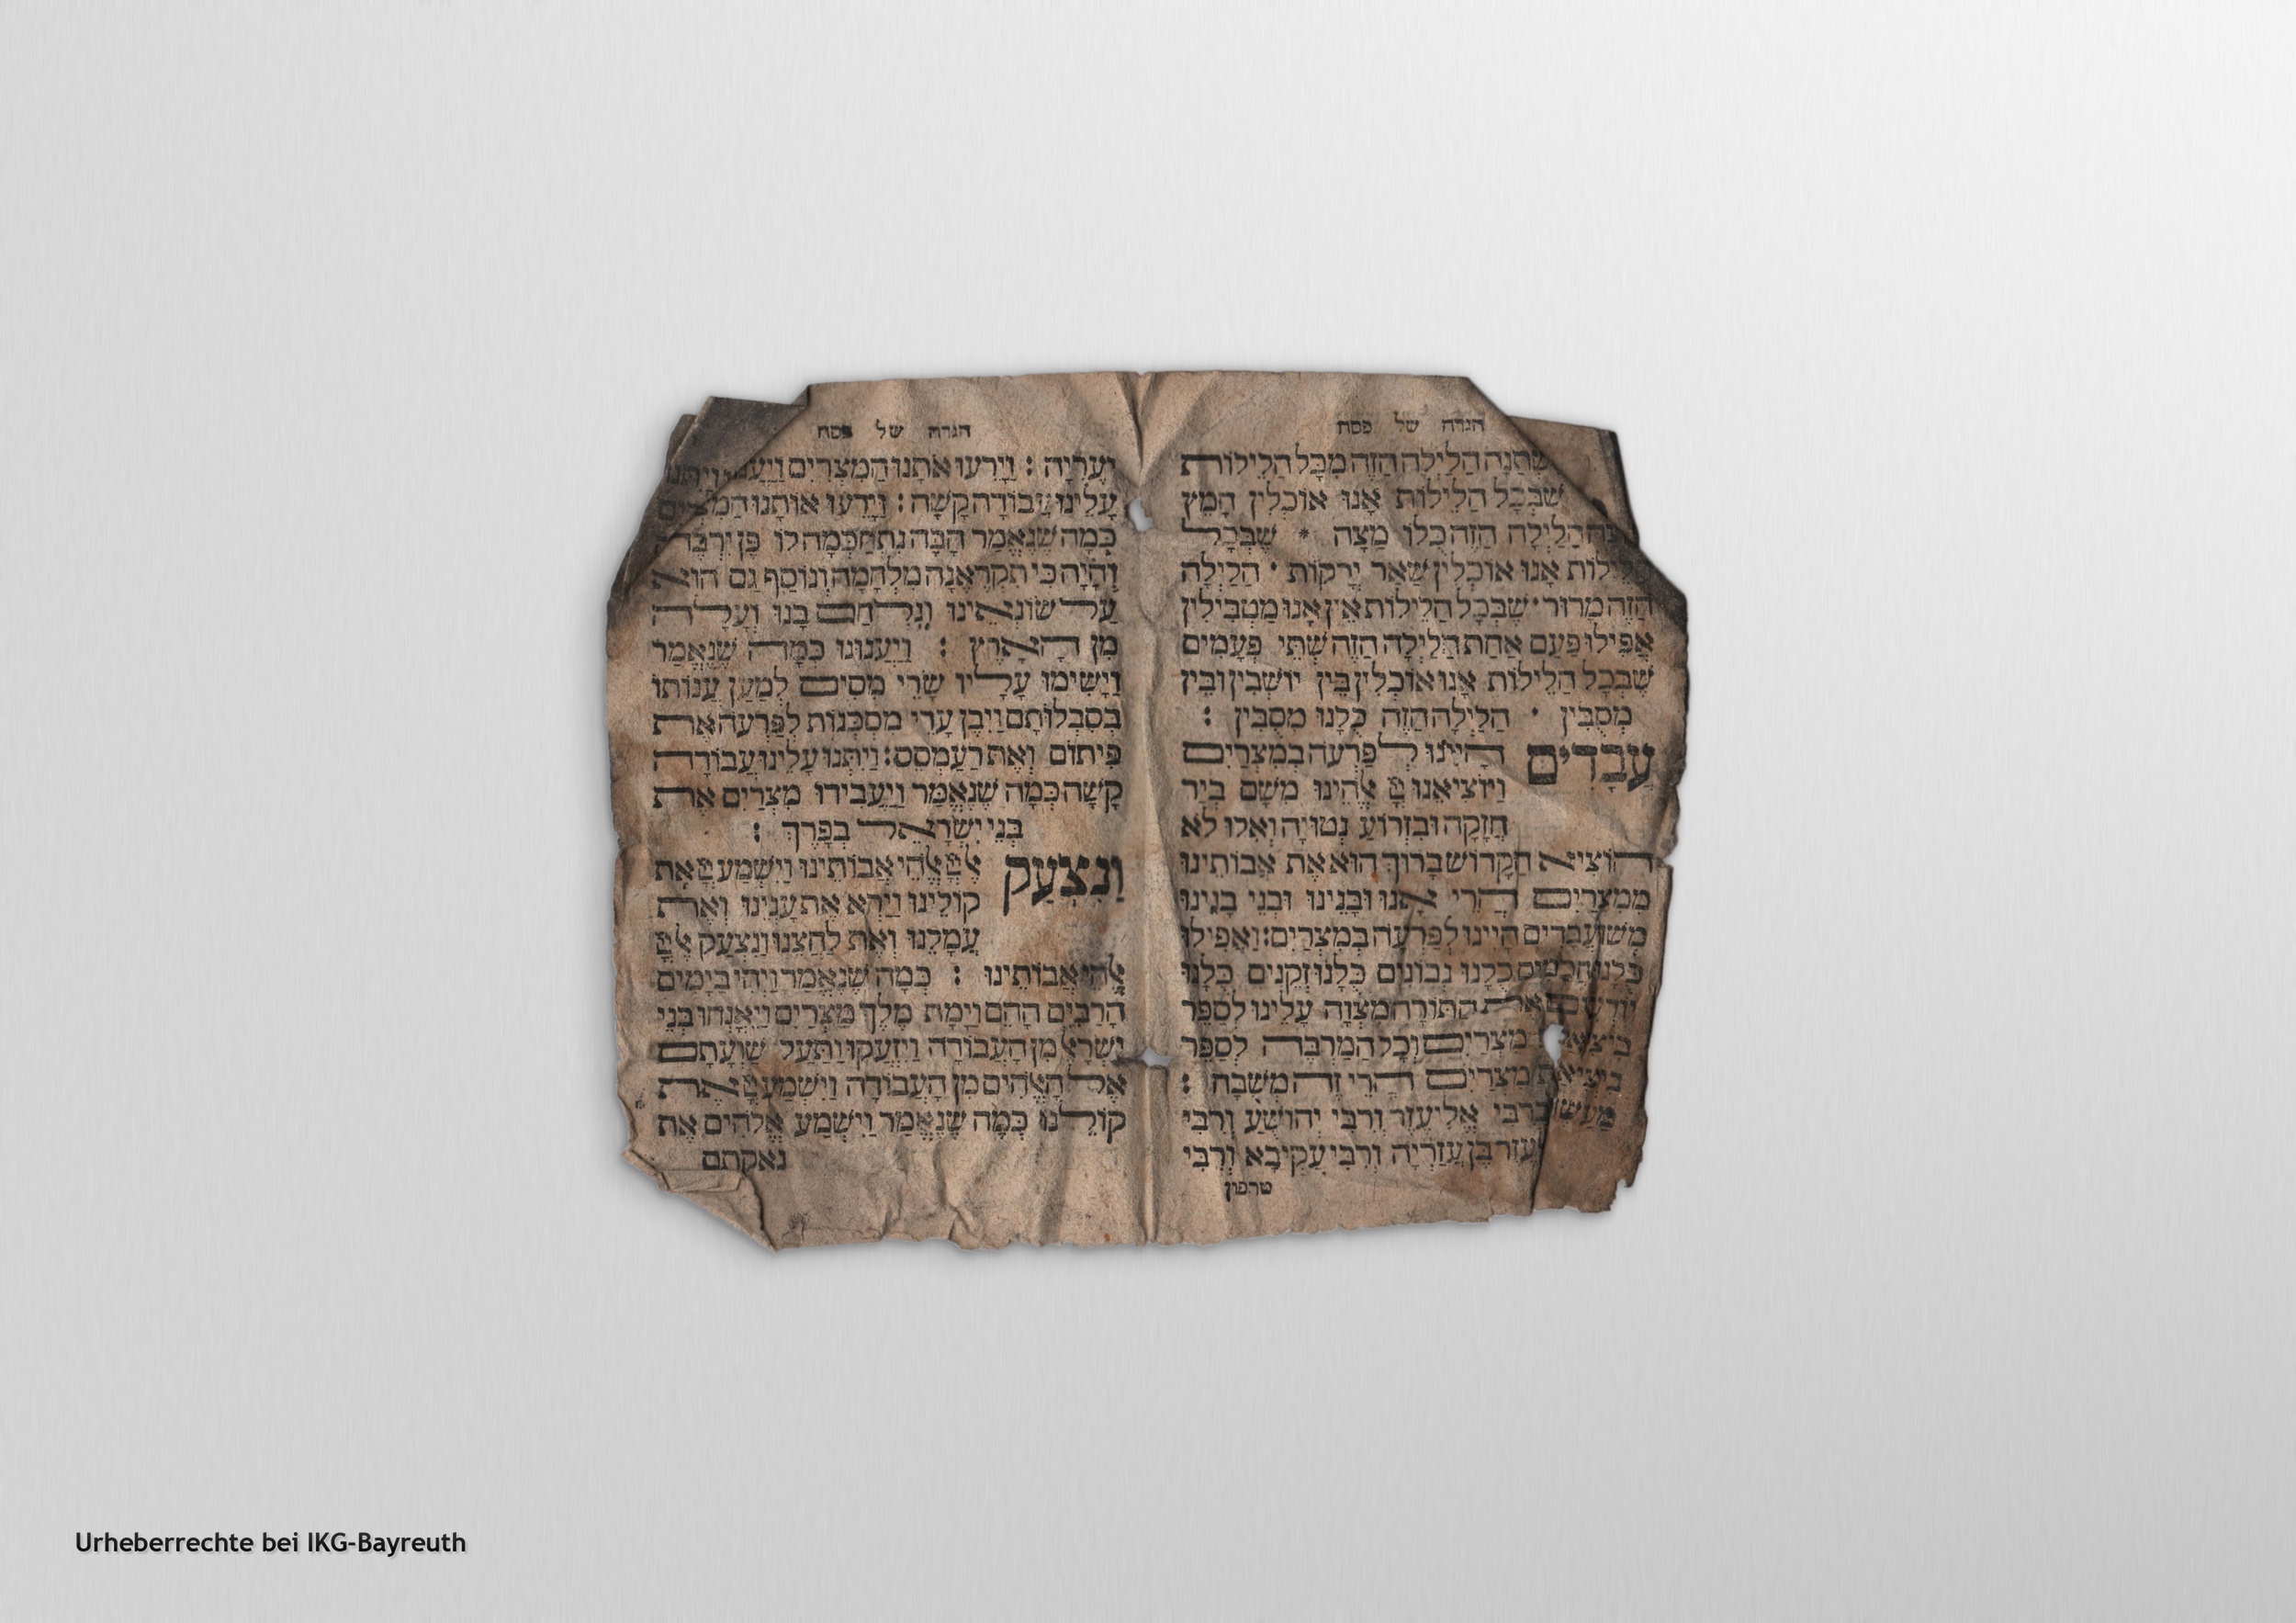 הגדה של פסח
שתנה הלילה הזה מכל הלילות
שבכל הלילות אנו אוכלין חמץ
הלילה הזה כלו מצה * שבכל
אנו אוכלין שאר ירקות · הלילה
הזה מרור · שבכל הלילות אין אנו מטבילין
אפילו פעם אחת הלילה הזה שתי פעמים
שבכל הלילות אנו אוכלין בין יושבין ובין
מסובין · הלילה הזה כלנו מסובין :
עבדים היינו לפרעה במצרים
ויוציאנו אלהינו משם ביד
חזקה ובזרוע נטויה ואלו לא
הוציא הקדוש ברוך הוא את אבותינו
ממצרים הרי אנו ובנינו ובני בנינו
משועבדים היינו לפרעה במצרים : ואפילו
כלנו חכמים כלנו נבונים כלנו זקנים כלנו
יודעים את התורה מצוה עלינו לספר
ביציאת מצרים וכל המרבה לספר
ביציאת מצרים הרי זה משבח :
מעשה ברבי אליעזר ורבי יהושע ורבי
בן עזריה ורבי עקיבא ורבי
טרפון
הגדה של פסח
ועריה : וירעו אתנו המצרים ויענו ויתנו
עלינו עבודה קשה : וירעו אותנו המצרים
כמה שנאמר הבה נתחכמה לו פן ירבה
והיה כי תקראנה מלחמה ונוסף גם הוא
על שונאינו ונלחם בנו ועלה
מן הארץ : ויענונו כמה שנאמר
וישימו עליו שרי מסים למען ענותו
בסבלותם ויבן ערי מסכנות לפרעה את
פיתום ואת רעמסס : ויתנו עלינו עבודה
קשה כמה שנאמר ויעבידו מצרים את
בני ישראל בפרך :
ונצעק אל אלהי אבותינו וישמע את
קולינו וירא את ענינו ואת
עמלנו ואת לחצנו ונצעק אל
אלהי אבותינו : כמה שנאמר ויהי בימים
הרבים ההם וימת מלך מצרים ויאנחו בני
ישראל מן העבודה ויזעקו ותעל שועתם
אל האלהים מן העבודה וישמע את
קולנו כמה שנאמר וישמע אלהים את
נאקתם
Urheberrechte bei IKG-Bayreuth